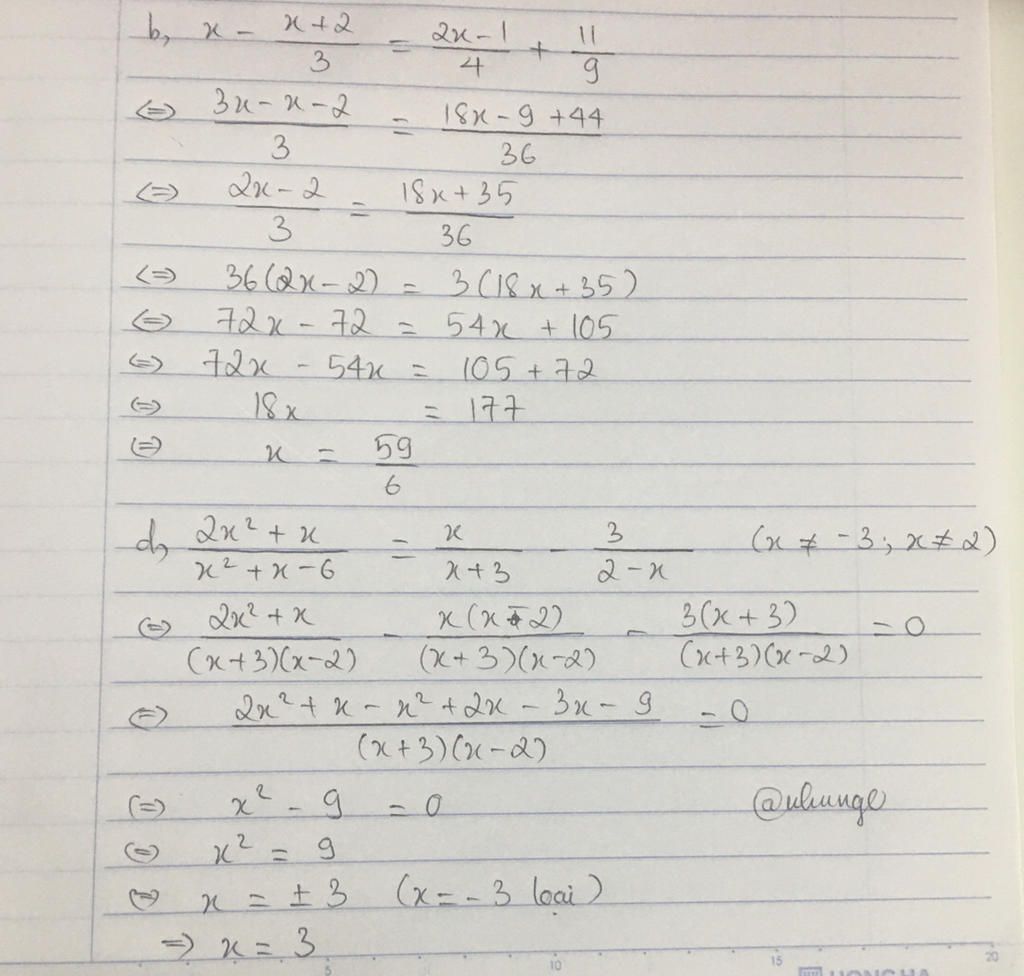 b, x - (x+2)/3 = (2x-1)/4 + 11/9
<=> (3x-x-2)/3 = (18x-9+44)/36
<=> (2x-2)/3 = (18x+35)/36
<=> 36(2x-2) = 3(18x+35)
<=> 72x - 72 = 54x + 105
<=> 72x - 54x = 105 + 72
<=> 18x = 177
<=> x = 59/6
d, (2x²+x)/(x²+x-6) = x/(x+3) - 3/(2-x) (x ≠ -3; x ≠ 2)
<=> (2x²+x)/((x+3)(x-2)) - x(x-2)/((x+3)(x-2)) - 3(x+3)/((x+3)(x-2)) = 0
<=> (2x²+x-x²+2x-3x-9)/((x+3)(x-2)) = 0
<=> x² - 9 = 0
<=> x² = 9
<=> x = ±3 (x = -3 loại)
=> x = 3
5 10 15 20
HONG HA